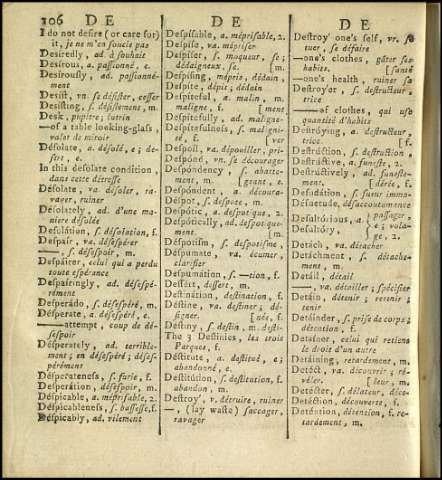 106 D E
D E
D E
I do not desire (or care for)
it, je ne m'en soucie pas
Desiredly, ad. à souhait
Desirous, a. passionné, e.
Desirously, ad. passionné-
ment
Desist, vn. se désister, cesser
Desisting, s. désistement, m.
Desk, pupitre; lutrin
—of a table looking-glass,
valet de miroir
Désolate, a. désolé, e; dé-
sert, e.
In this desolate condition,
dans cette détresse
Désolate, va. désoler, ra-
vager, ruiner
Désolately, ad. d'une ma-
nière désolée
Desolátion, s. désolation, f.
Despair, va. désespérer
—, s. désespoir, m.
Despáirer, celui qui a perdu
toute espérance
Despairingly, ad. désespé-
rément
Desperádo, s. désespéré, m.
Désperate, a. désespéré, e.
—attempt, coup de dé-
sespoir
Désperately, ad. terrible-
ment; en désespéré; déses-
pérément
Désperateness, s. furie, f.
Desperátion, désespoir, m.
Déspicable, a. méprisable, 2.
Déspicableness, s. bassesse, f.
Déspicably, ad. vilement
Despisable, a. méprisable, 2.
Despise, va. mépriser
Despiser, s. moqueur, se;
dédaigneux, se. [m.
Despising, mépris, dédain,
Despite, dépit; dédain
Despiteful, a. malin, m.
maligne, f. [ment
Despitefully, ad. maligne-
Despitefulness, s. maligni-
té, f. [ver
Despoil, va. dépouiller, pri-
Despónd, vn. se décourager
Despóndency, s. abatte-
ment, m. [geant, e.
Despóndent, a. découra-
Déspot, s. despote, m.
Despótic, a. despotique, 2.
Despótically, ad. despotique-
ment. [m.
Déspotism, s. despotisme,
Déspumate, va. écumer,
clarifier
Despumátion, s. —tion, f.
Dessért, dessert, m.
Destinátion, destination, f.
Déstine, va. destiner; dé-
signer. [née, f.
Déstiny, s. destin, m. desti-
The 3 Destinies, les trois
Parques, f.
Déstitute, a. destitué, e;
abandonné, e.
Destitútion, s. destitution, f.
abandon, m.
Destroy', v. détruire, ruiner
—, (lay waste) saccager,
ravager
Destroy' one's self, vr. se
tuer, se défaire
—one's clothes, gâter ses
habits. [santé
—one's health, ruiner sa
Destroy'er, s. destructeur,
trice
—of clothes, qui use
quantité d'habits
Destróying, a. destructeur,
trice. [f.
Destrúction, s. destruction,
Destrúctive, a. funeste, 2.
Destrúctively, ad. funeste-
ment. [dérée, f.
Desudátion, s. sueur immo-
Désuetude, désaccoutumance
Desultórious, a. } passager,
Désultory, } e; vola-
ge, 2.
Detách, va. détacher
Detáchment, s. détache-
ment, m.
Detáil, détail
—, va. détailler; spécifier
Detáin, détenir; retenir;
tenir
Detáinder, s. prise de corps;
détention, f.
Detainer, celui qui retient
le droit d'un autre
Detaining, retardement, m.
Detéct, va. découvrir; ré-
véler. [leur, m.
Detécter, s. délateur, décé-
Detéction, découverte, f.
Deténtion, détention, f. re-
tardement, m.